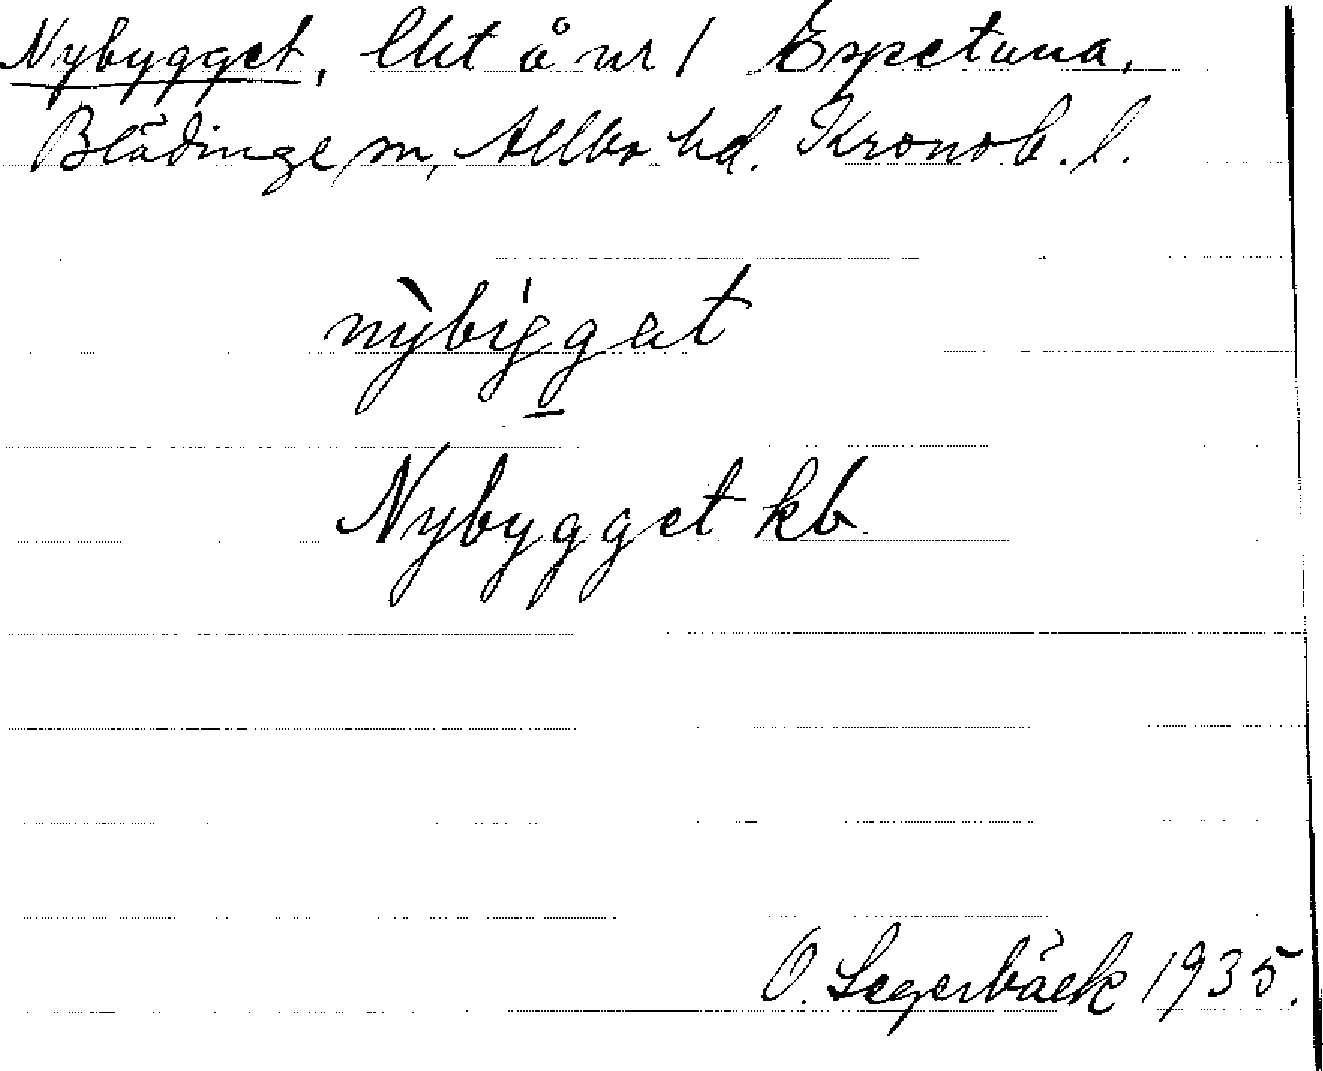 Nybygget, lht å nr 1 Espetuna,
Blädinge sn, Allbo hd. Kronob. l.
nỳbig̀gat
Nybygget kb.
O. Segerbäck 1935.